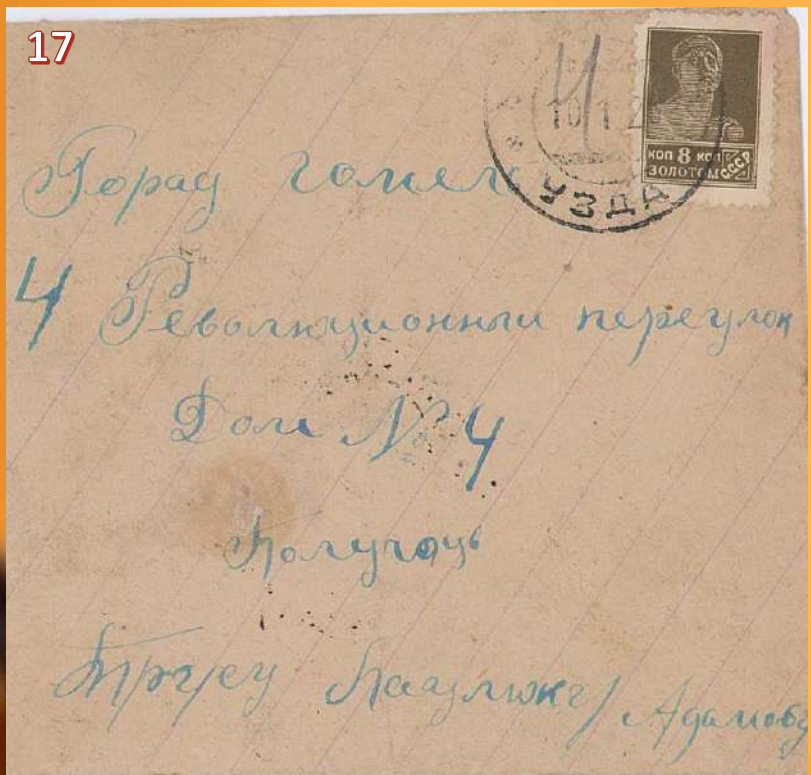 17
10 1 2
УЗДА
КОП 8 КОП
ЗОЛОТОМ СССР
Горад Гомель
4 Революционныи переулок
Дом № 4
Получаць
Трусу Паулюку Адамову